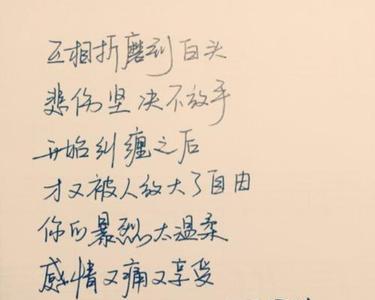 互相折磨到白头
悲伤坚决不放手
开始纠缠之后
才又被人放大了自由
你的暴烈太温柔
感情又痛又享受